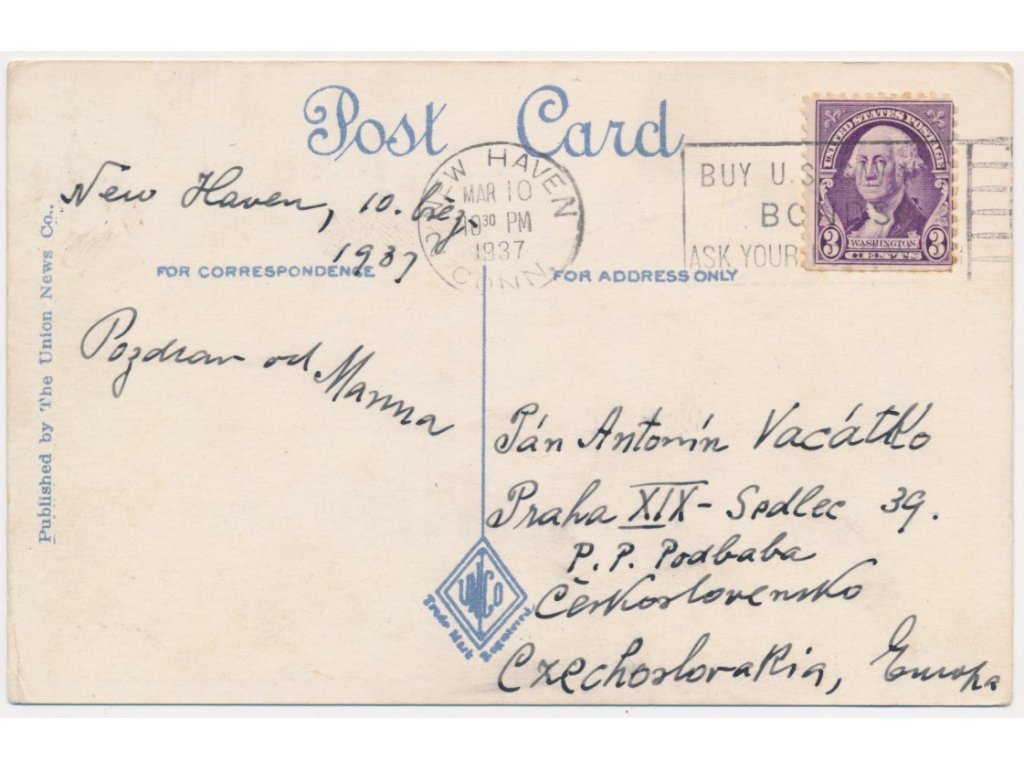 Post Card
NEW HAVEN
MAR 10
10 30 PM
1937
2 CONN.
BUY U.S.
ASK YOUR
UNITED STATES POSTAGE
3 WASHINGTON 3
CENTS
New Haven, 10. břez.
1937
FOR CORRESPONDENCE
FOR ADDRESS ONLY
Published by The Union News Co.,
Pozdrav od
Manna
Pán Antonín Vacátko
Praha XIX - Sedlec 39.
P. P. Podbaba
Československo
Czechoslovakia, Europa
UNCO
Trade Mark Registered.